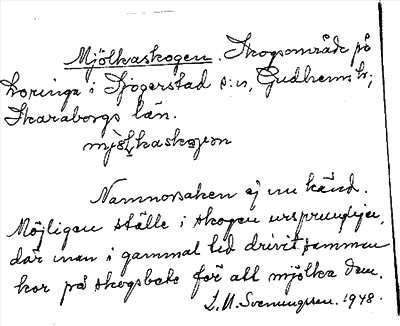 Mjölkaskogen. Skogsområde på
Loringa i Sjogerstad s:n, Gudhems h;
Skaraborgs län.
mjölkaskogen
Namnorsaken ej nu känd.
Möjligen ställe i skogen ursprungligen,
där man i gammal tid drivit samman
kor på skogsbete för att mjölka dem.
L. M. Svenungsson. 1948.